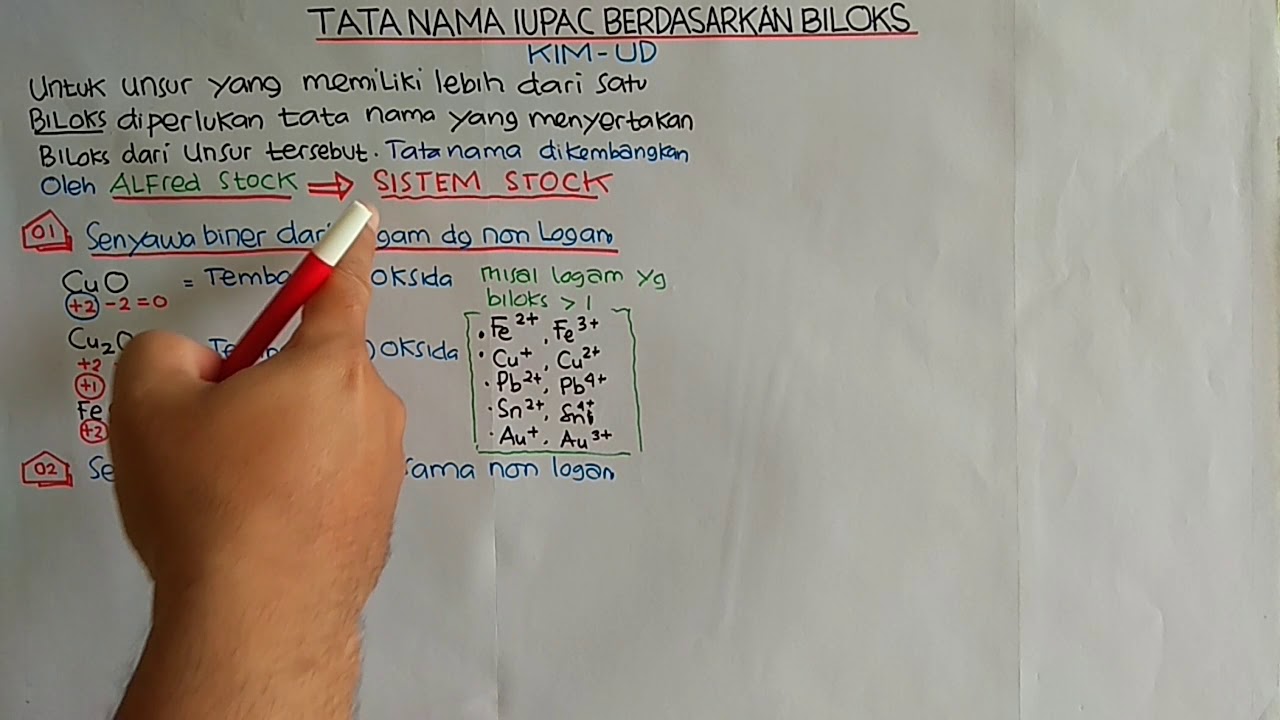 TATA NAMA IUPAC BERDASARKAN BILOKS
KIM-UD
Untuk unsur yang memiliki lebih dari satu
BILOKS diperlukan tata nama yang menyertakan
BILOKS dari Unsur tersebut. Tata nama dikembangkan
Oleh ALFred Stock ⇒ SISTEM STOCK
01 Senyawa biner dari gam dg non Logam
CuO = Temba OKSida
+2 -2 = 0
Cu₂O ) OKSida
+2
+1
Fe
+2
misal logam yg
biloks > 1
• Fe²⁺, Fe³⁺
• Cu⁺, Cu²⁺
• Pb²⁺, Pb⁴⁺
• Sn²⁺, Sn⁴⁺
• Au⁺, Au³⁺
02 Se sama non logam